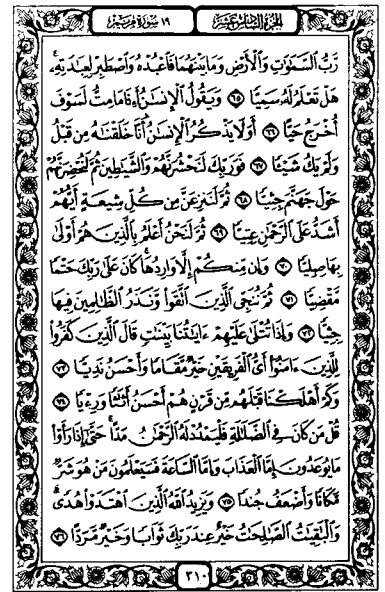 الجزء السادس عشر
١٩ سورة مريم
رَّبُّ السَّمَٰوَٰتِ وَالْأَرْضِ وَمَا بَيْنَهُمَا فَاعْبُدْهُ وَاصْطَبِرْ لِعِبَٰدَتِهِۦ ۚ
هَلْ تَعْلَمُ لَهُۥ سَمِيًّا ٦٥ وَيَقُولُ الْإِنسَٰنُ أَءِذَا مَا مِتُّ لَسَوْفَ
أُخْرَجُ حَيًّا ٦٦ أَوَلَا يَذْكُرُ الْإِنسَٰنُ أَنَّا خَلَقْنَٰهُ مِن قَبْلُ
وَلَمْ يَكُ شَيْـًٔا ٦٧ فَوَرَبِّكَ لَنَحْشُرَنَّهُمْ وَالشَّيَٰطِينَ ثُمَّ لَنُحْضِرَنَّهُمْ
حَوْلَ جَهَنَّمَ جِثِيًّا ٦٨ ثُمَّ لَنَنزِعَنَّ مِن كُلِّ شِيعَةٍ أَيُّهُمْ
أَشَدُّ عَلَى الرَّحْمَٰنِ عِتِيًّا ٦٩ ثُمَّ لَنَحْنُ أَعْلَمُ بِالَّذِينَ هُمْ أَوْلَىٰ
بِهَا صِلِيًّا ٧٠ وَإِن مِّنكُمْ إِلَّا وَارِدُهَا ۚ كَانَ عَلَىٰ رَبِّكَ حَتْمًا
مَّقْضِيًّا ٧١ ثُمَّ نُنَجِّى الَّذِينَ اتَّقَوا وَّنَذَرُ الظَّٰلِمِينَ فِيهَا
جِثِيًّا ٧٢ وَإِذَا تُتْلَىٰ عَلَيْهِمْ ءَايَٰتُنَا بَيِّنَٰتٍ قَالَ الَّذِينَ كَفَرُوا
لِلَّذِينَ ءَامَنُوٓا أَىُّ الْفَرِيقَيْنِ خَيْرٌ مَّقَامًا وَأَحْسَنُ نَدِيًّا ٧٣
وَكَمْ أَهْلَكْنَا قَبْلَهُم مِّن قَرْنٍ هُمْ أَحْسَنُ أَثَٰثًا وَرِءْيًا ٧٤
قُلْ مَن كَانَ فِى الضَّلَٰلَةِ فَلْيَمْدُدْ لَهُ الرَّحْمَٰنُ مَدًّا ۚ حَتَّىٰٓ إِذَا رَأَوْا
مَا يُوعَدُونَ إِمَّا الْعَذَابَ وَإِمَّا السَّاعَةَ فَسَيَعْلَمُونَ مَنْ هُوَ شَرٌّ
مَّكَانًا وَأَضْعَفُ جُندًا ٧٥ وَيَزِيدُ اللَّهُ الَّذِينَ اهْتَدَوْا هُدًى ۗ
وَالْبَٰقِيَٰتُ الصَّٰلِحَٰتُ خَيْرٌ عِندَ رَبِّكَ ثَوَابًا وَخَيْرٌ مَّرَدًّا ٧٦
٣١٠